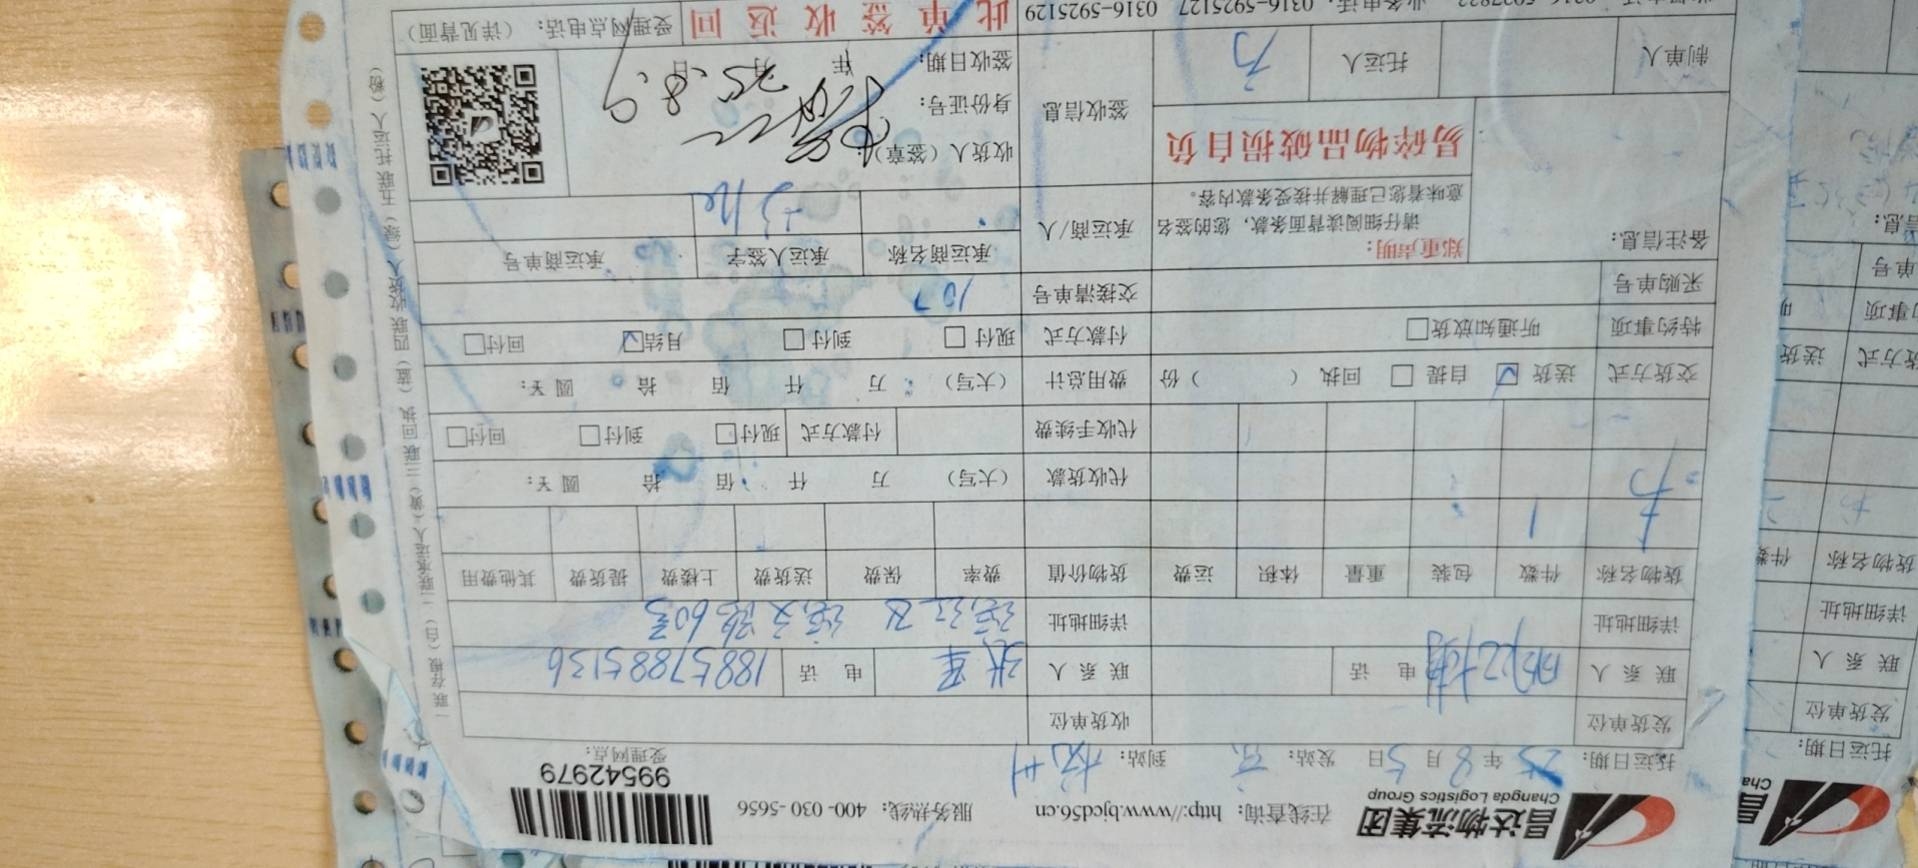 昌达物流集团
Changda Logistics Group
在线查询：http://www.bjcd56.cn 服务热线：400-030-5656
99542979
托运日期：25年8月5日 发站：京 到站：杭州 受理网点：
发货单位 收货单位
联系人 电话 联系人 张军 电话 18857885136
详细地址 详细地址 60号
货物名称 件数 包装 重量 体积 运费 货物价值 费率 保费 送货费 上楼费 提货费 其他费用
1
代收货款 （大写） 万 仟 佰 拾 圆 ¥：
代收手续费 付款方式 现付□ 到付□ 回付□
交货方式 送货☑ 自提□ 回执（ ）份 费用总计 （大写） 万 仟 佰 拾 圆 ¥：
特约事项 听通知放货□ 付款方式 现付□ 到付□ 月结☑ 回付□
采购单号 交接清单号 107
备注信息： 郑重声明： 承运商/人 承运商名称 承运人签字 承运商单号
请仔细阅读背面条款，您的签名
意味着您已理解并接受条款内容。
易碎物品破损自负
签收信息 收货人（签章）：
身份证号：
签收日期： 年 月 日 25.8.9
制单人 托运人 万
业务电话：0316-5925127 0316-5925129 此单签收返回 受理网点电话：（详见背面）
一联存根（白）二联承运人（黄）三联回执（蓝）四联收货人（绿）五联托运人（粉）
托运日期：
发货单位
联系人
详细地址
货物名称 件数